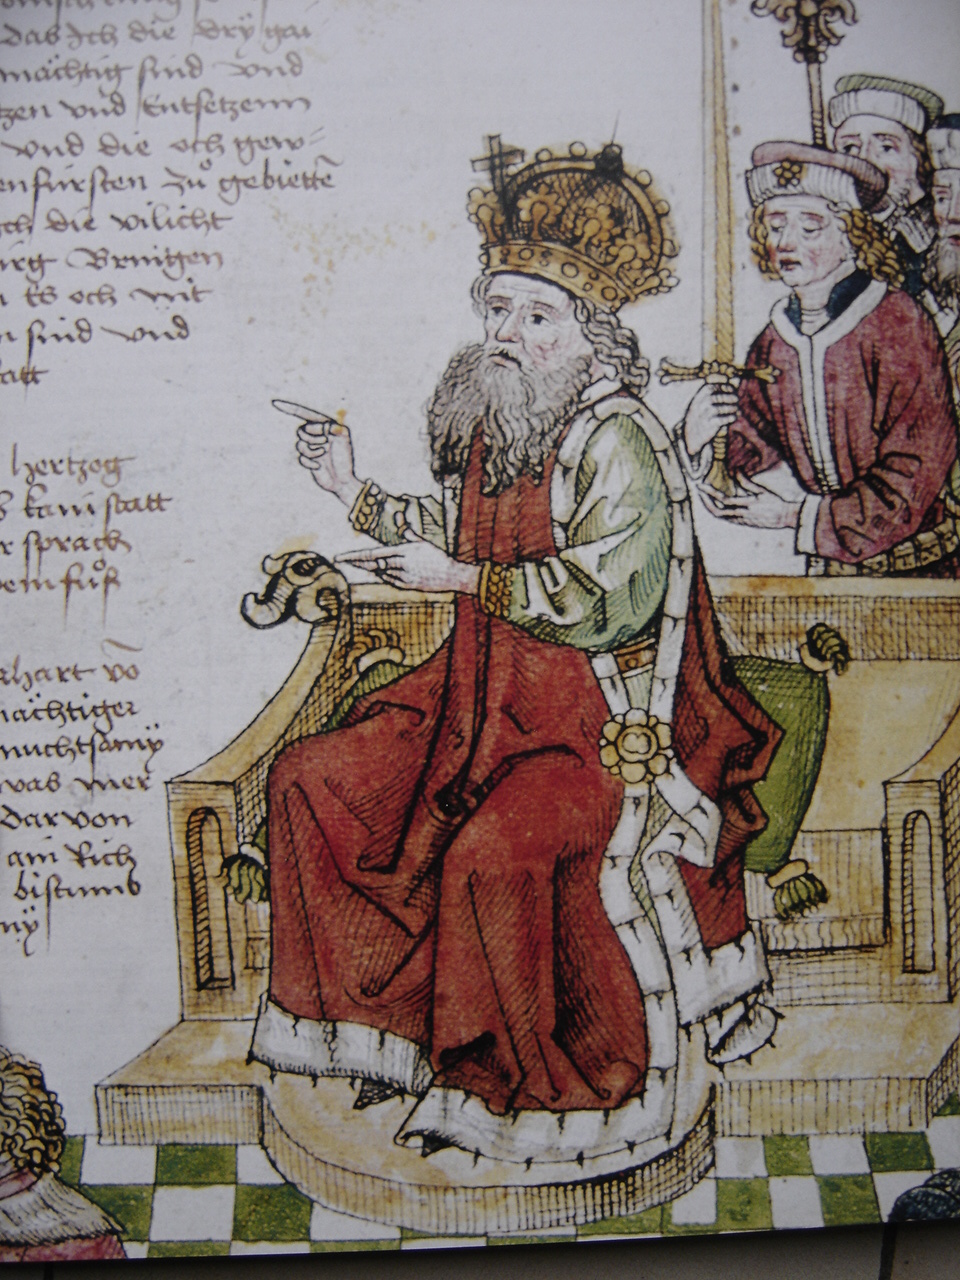 das Ich die dry gai
mächtig sind vnd
tzen vnd Entsetzenn
vnd die och gew-
enfürsten zů gebiette
ch die vilicht
irg Bringen
ts och mit
sind vnd
att
hertzog
s kam statt
r sprach
dem fůß
rhart vo
mächtiger
nuchtsamy
was mer
dar von
ain Rich
bistumb
ny